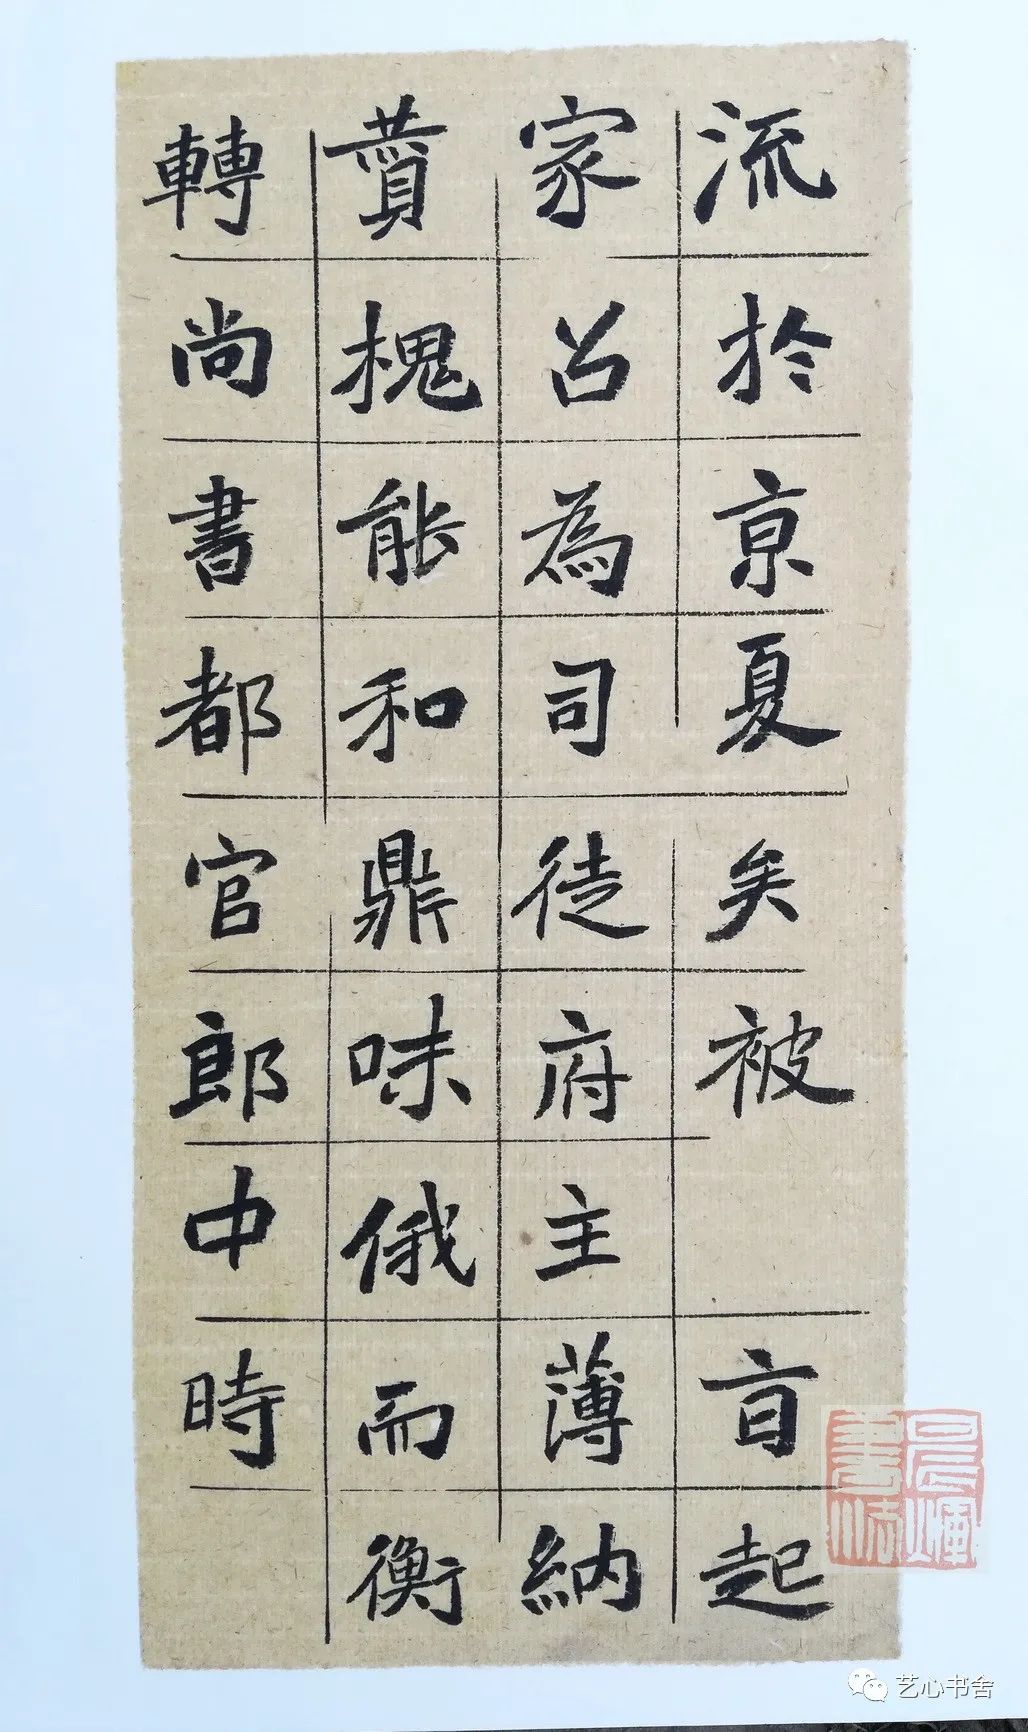 流於京夏矣被 旨起
家召為司徒府主薄納
贊槐能和鼎味俄而衡
轉尚書都官郎中時
艺心书舍